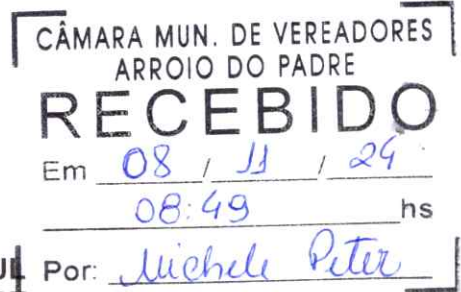 CÂMARA MUN. DE VEREADORES
ARROIO DO PADRE
RECEBIDO
Em 08 / 11 / 24
08:49 hs
UL Por: Michele Peter